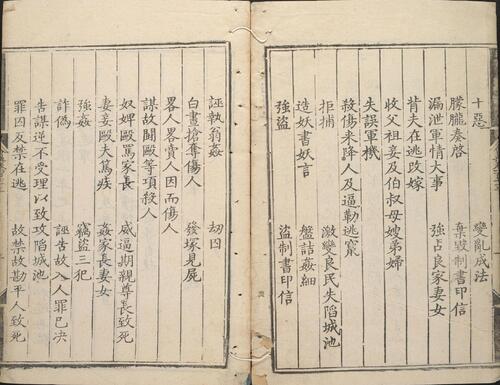 十惡 變亂成法
朦朧奏啓 棄毀制書印信
漏泄軍情大事 強占良家妻女
背夫在逃改嫁
收父祖妾及伯叔母嫂弟婦
失誤軍機
殺傷來降人及逼勒逃竄
拒捕 激變良民失陷城池
造妖書妖言 盤詰姦細
強盜 盜制書印信
誣執翁姦 劫囚
白晝搶奪傷人 發塚見屍
畧人畧賣人因而傷人
謀故鬪毆等項殺人
奴婢毆罵家長 威逼期親尊長致死
妻妾毆夫篤疾 姦家長妻女
強姦 竊盜三犯
詐僞 誣告故入人罪已决
告謀逆不受理以致攻陷城池
罪囚反禁在逃 故禁故勘平人致死